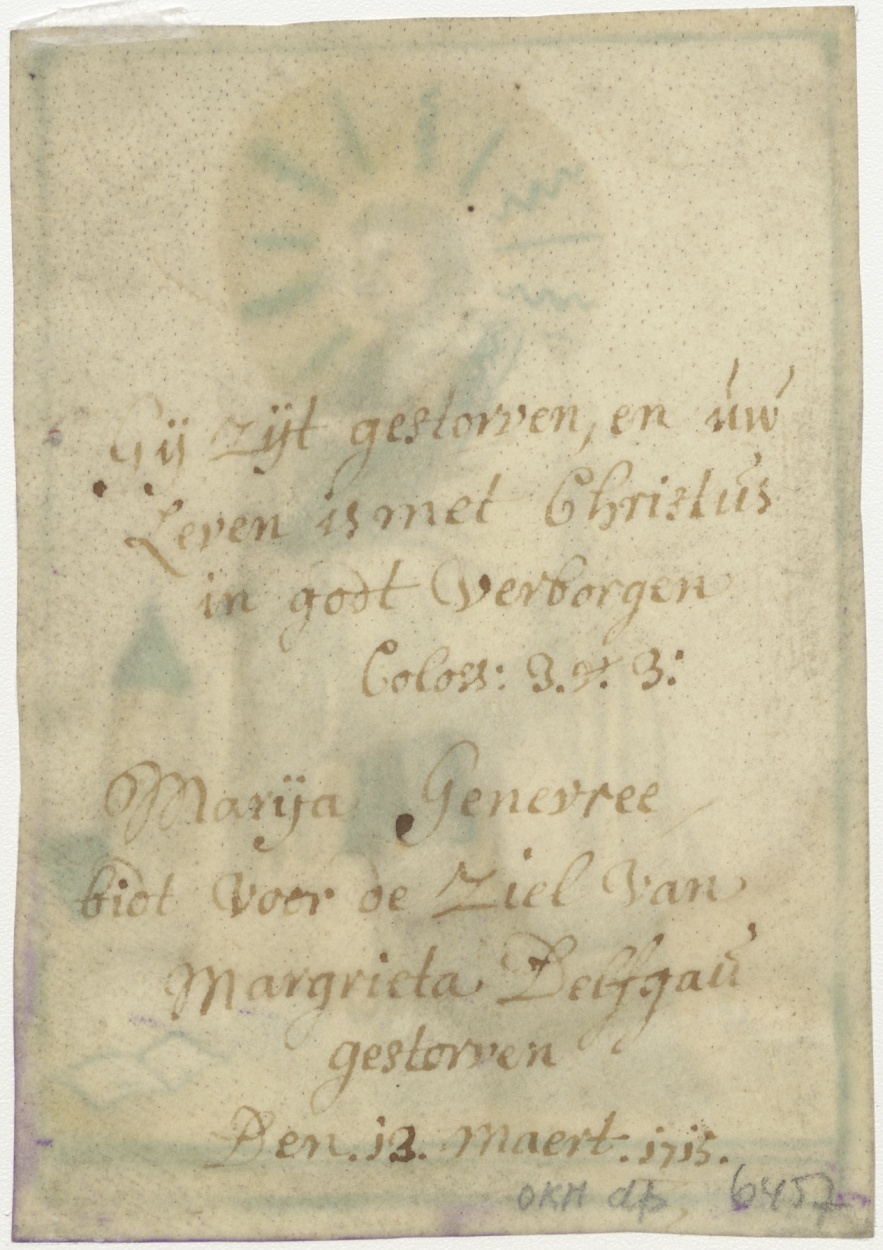 Gij zijt gestorven, en uw
Leven is met Christus
in godt Verborgen
Coloss: 3. ℣. 3:
Marija Genevree
bidt Voor de Ziel Van
Margrieta Delfgau
gestorven
Den. 13. Maert. 1715.
OKM dp 6457